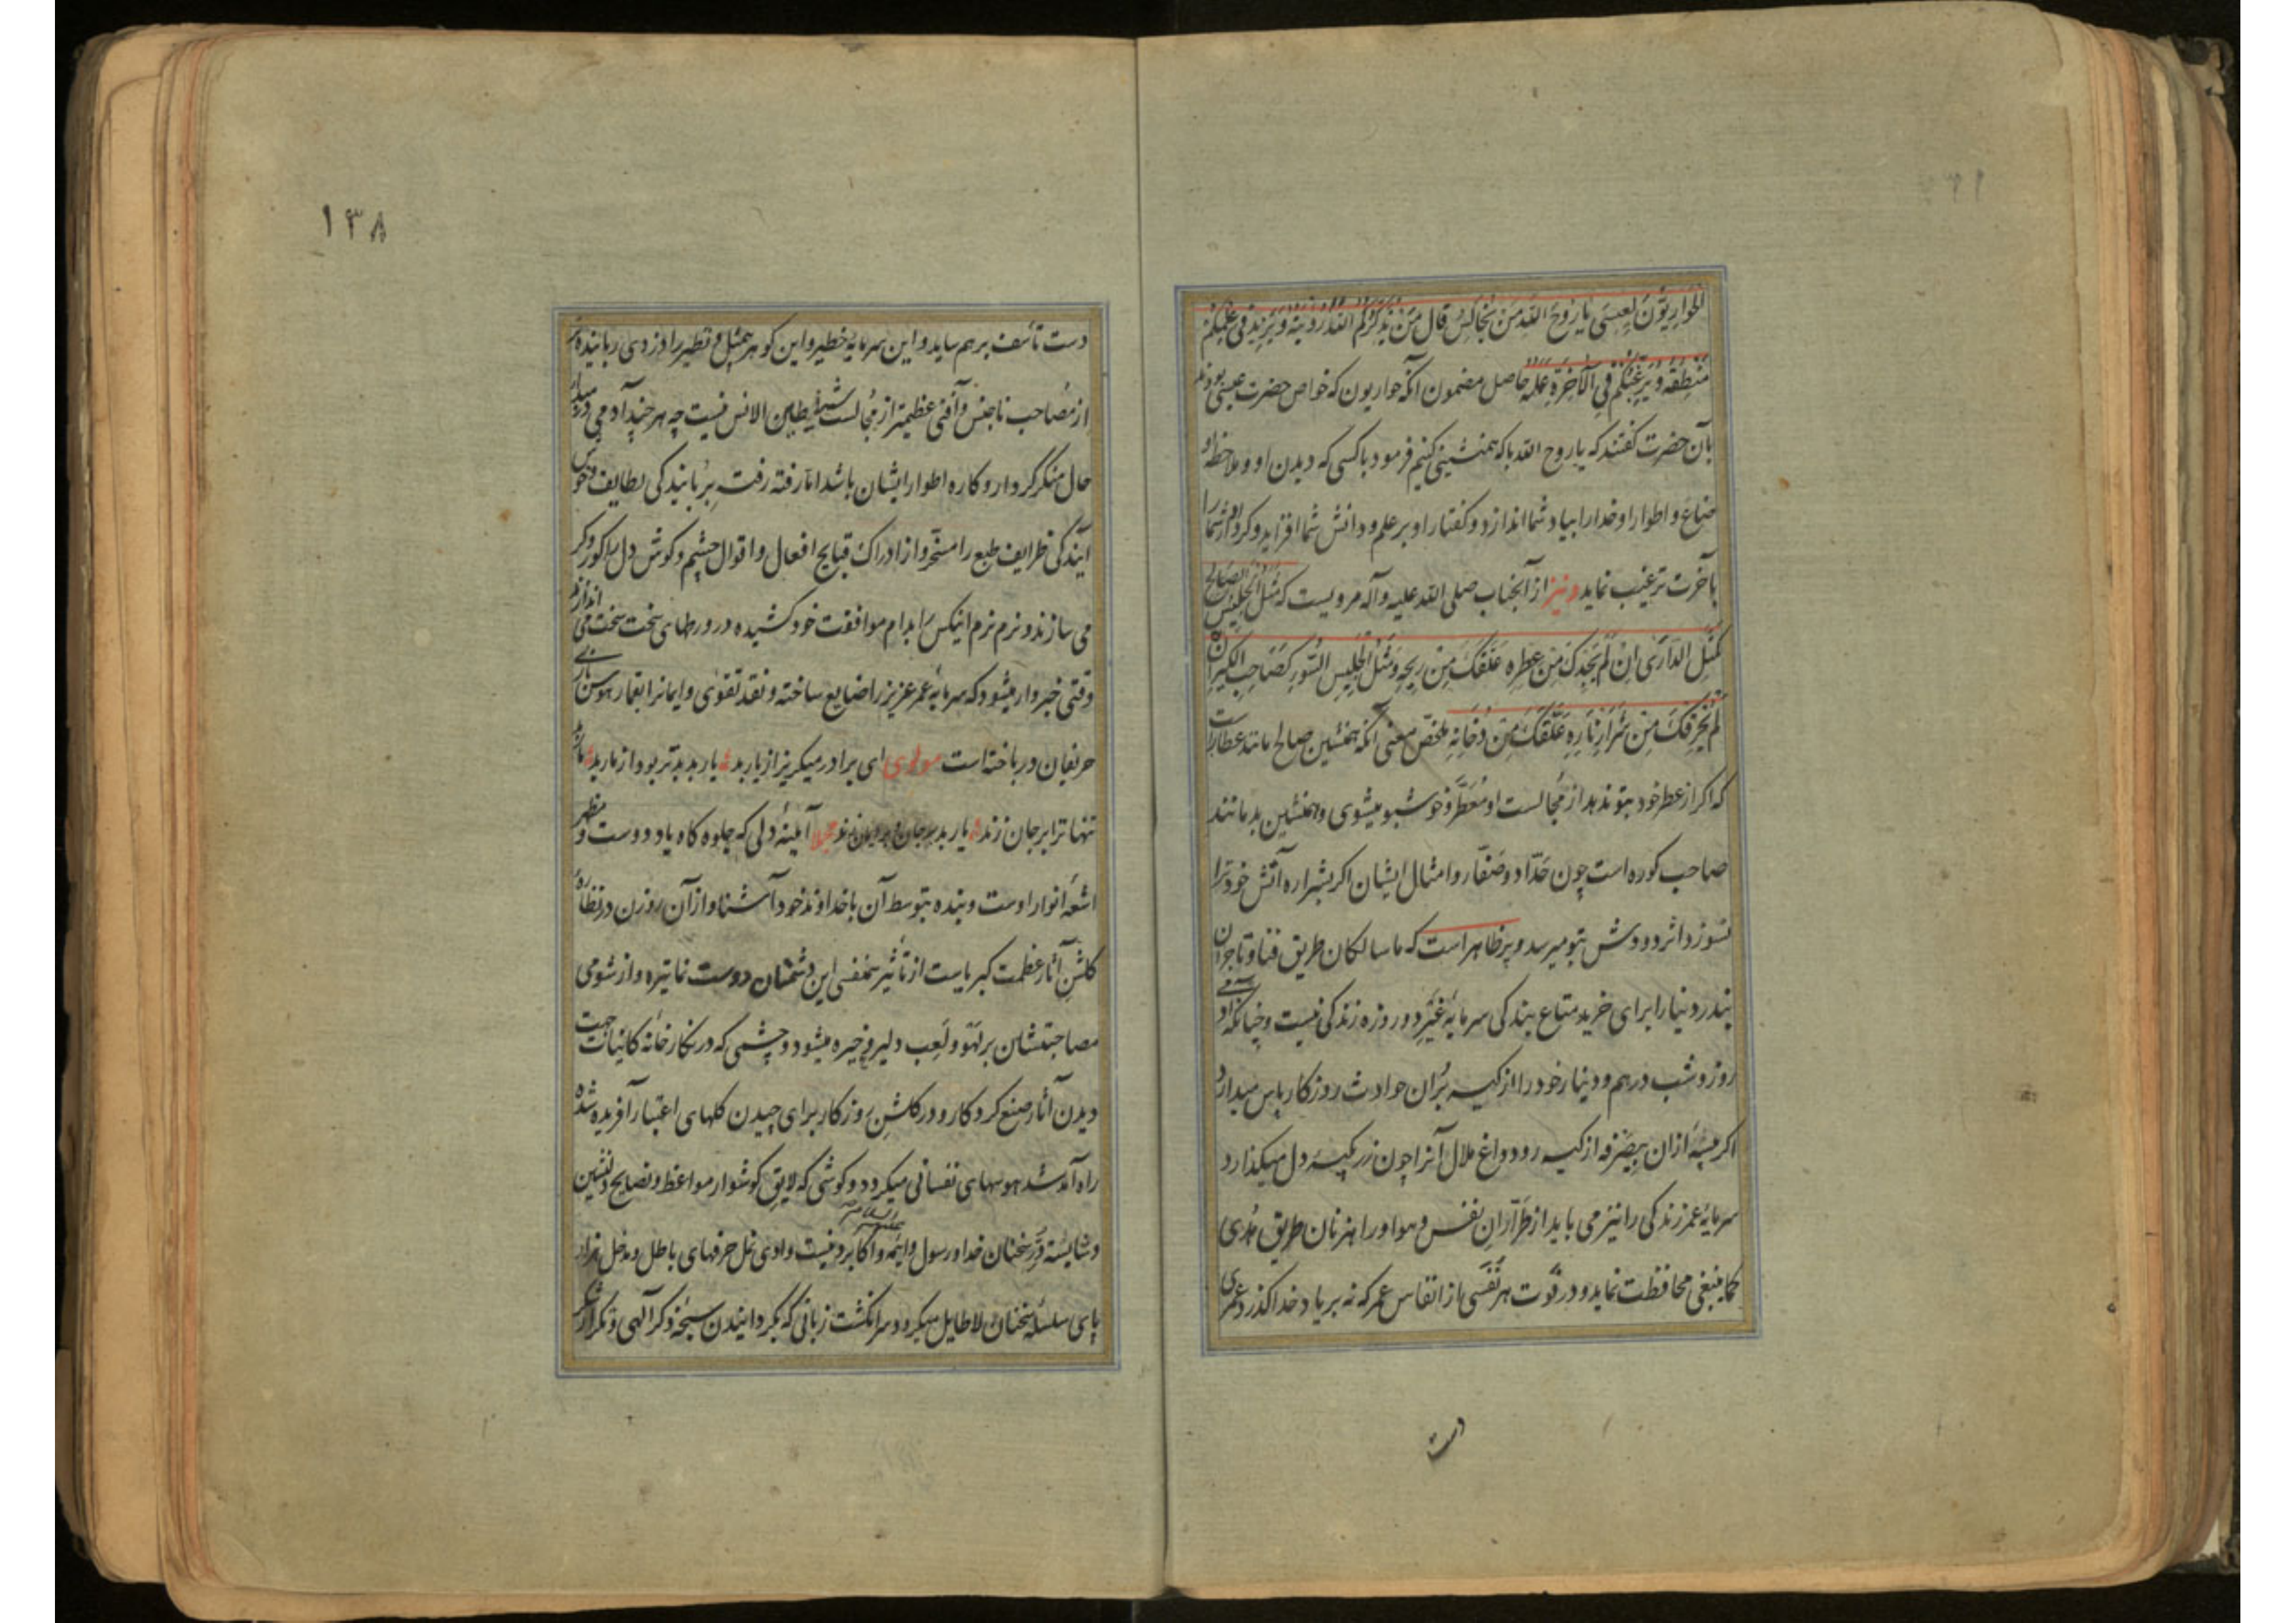 الحَوارِیّونَ لِعیسَی یا رُوحَ اللهِ مَن نُجالِسُ قالَ مَن یُذَکِّرُکُمُ اللهَ رُؤیَتُهُ وَیَزیدُ فی عِلمِکُم
مَنطِقُهُ وَیُرَغِّبُکُم فِی الآخِرَةِ عَمَلُهُ حاصل مضمون آنکه حواریون که خواص حضرت عیسی بودند
بآن حضرت کفتند که یا روح الله با که همنشینی کنیم فرمود با کسی که دیدن او و ملاحظه
اوضاع و اطوار او خدا را بیاد شما اندازد و کفتار او بر علم و دانش شما افزاید و کردار او شما را
بآخرت ترغیب نماید و نیز از آنجناب صلی الله علیه و آله مرویست که مَثَلُ الجَلیسِ الصّالِحِ
کَمَثَلِ الدّارِیِّ اِن لَم یُجِدکَ مِن عِطرِهِ عَلَقَکَ مِن ریحِهِ وَمَثَلُ الجَلیسِ السُّوءِ کَصاحِبِ الکیرِ اِن
لَم یُحرِقکَ مِن شَرارِ نارِهِ عَلَقَکَ مِن دُخانِهِ ملخّص معنی آنکه همنشین صالح مانند عطارست
که اکر از عطر خود بتو ندهد از مُجالست او مُعَطّر و خوشبو میشوی و همنشین بد مانند
صاحب کوره است چون حَدّاد و صَفّار و امثال ایشان اکر بشراره آتش خود ترا
نسوزد اثر دودش بتو میرسد و پر ظاهر است که ما سالکان طریق فنا و تاجران
بندر دنیا را برای خرید متاع بندکی سرمایهٔ غیر دو روزه زندکی نیست و چنانکه آدمی
روز و شب درهم و دینار خود را از کیسه بُران حوادث روزکار پاس میدارد
اکر حبّهٔ ازان بیصَرفه از کیسه رود داغ ملال آنرا چون زر بکیسهٔ دل میکذارد
سرمایهٔ عمر زندکی را نیز می باید از طَرّارانِ نفس و هوا و راهزنان طریق هُدی
کما ینبغی محافظت نماید و در فَوت هر نَفَسی از انفاس عمر که نه بر یاد خدا کذرد عمری
دست
١٣٨
دست تأسّف برهم ساید و این سرمایهٔ خطیر و این کوهر بیمثل و نظیر را دزدی رباینده‌تر
از مُصاحب ناجنس و آفتی عظیمتر از مُجالست شیاطین الانس نیست چه هر چند آدمی در مبداء
حال منکر کردار و کاره اطوار ایشان باشد امّا رفته رفته بِرُبایندکی لطایف و خوش
آیندکی ظرایف طبع را مسخّر و از ادراک قبایح افعال و اقوال چشم و کوش دل را کور و کر
می سازند و نرم نرم اینکس را بدام موافقت خود کشیده در ورطهای سخت سخت می اندازند
وقتی خبردار میشود که سرمایهٔ عمر عزیز را ضایع ساخته و نقد تقوی و ایمانرا بقمار هوس بازی
حریفان در باخته است مولوی ای برادر میکریز از یار بد یار بد بدتر بود از مار بد مار بد
تنها ترا بر جان زند یار بد بر جان و بر ایمان زند مجملا آیینهٔ دلی که جلوه کاه یاد دوست و مظهر
اشعّهٔ انوار اوست و بنده بتوسط آن با خداوند خود آشنا و از آن روزن در نظّارهٔ
کلشنِ آثار عظمت کبریاست از تأثیر همنفسی این دشمنان دوست نما تیره و از شومی
مصاحبتشان بر لهو و لَعِب دلیر و خیره میشود و چشمی که در نکارخانهٔ کائنات جهت
دیدن آثار صنع کردکار و در کلشن روزکار برای چیدن کلهای اعتبار آفریده شده
راه آمد شد هوسهای نفسانی میکردد و کوشی که لایق کوشوار مواعظ و نصایح دلنشین
و شایستهٔ دُرّ سخنان خدا و رسول و ایمّه علیهم السلام و اکابر دینست وادی نمل حرفهای باطل و مدخل هزار
پای سلسلهٔ سخنان لاطایل میکردد و سر انکشت زبانی که بکردانیدن سبحهٔ ذکر آلهی و تکرار شکر